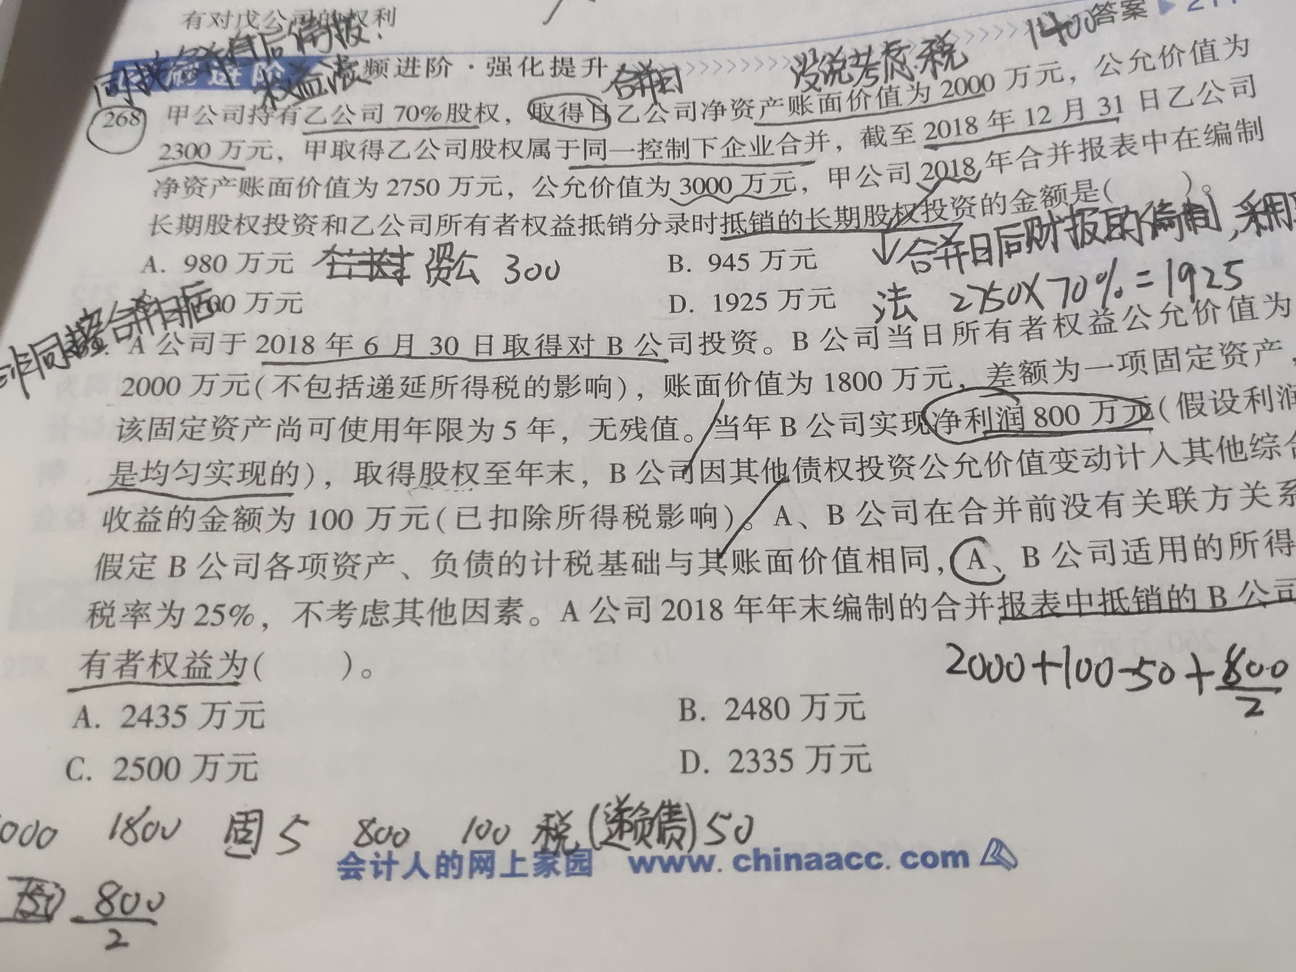 有对戊公司的权利
1400答案 ▶ 211
同控合并日后编报:
权益法
频进阶·强化提升
合并日
没说考虑税
268 甲公司持有乙公司 70%股权，取得日乙公司净资产账面价值为 2000 万元，公允价值为
2300 万元，甲取得乙公司股权属于同一控制下企业合并，截至 2018 年 12 月 31 日乙公司
净资产账面价值为 2750 万元，公允价值为 3000 万元，甲公司 2018 年合并报表中在编制
长期股权投资和乙公司所有者权益抵销分录时抵销的长期股权投资的金额是(　　)。
↓合并日后财报的编制,采用
A. 980 万元 资公 300 B. 945 万元
00 万元 D. 1925 万元 法 2750×70%=1925
非同控合并日后
A 公司于 2018 年 6 月 30 日取得对 B 公司投资。B 公司当日所有者权益公允价值为
2000 万元(不包括递延所得税的影响)，账面价值为 1800 万元，差额为一项固定资产，
该固定资产尚可使用年限为 5 年，无残值。当年 B 公司实现净利润 800 万元(假设利润
是均匀实现的)，取得股权至年末，B 公司因其他债权投资公允价值变动计入其他综合
收益的金额为 100 万元(已扣除所得税影响)。A、B 公司在合并前没有关联方关系
假定 B 公司各项资产、负债的计税基础与其账面价值相同，A、B 公司适用的所得
税率为 25%，不考虑其他因素。A 公司 2018 年年末编制的合并报表中抵销的 B 公司
有者权益为(　　)。
2000+100-50+800/2
A. 2435 万元 B. 2480 万元
C. 2500 万元 D. 2335 万元
000 1800 固 5 800 100 税(递负债)50
会计人的网上家园 www.chinaacc.com
800/2